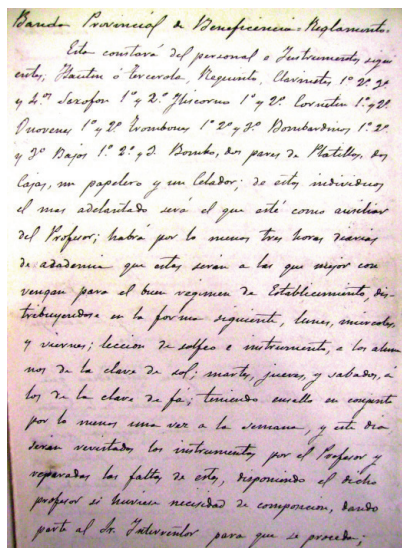 Banda Provincial de Beneficencia = Reglamento.
Esta constará del personal e Instrumentos sigui
entes, Flautin ó Tercerola, Requinto, Clarinetes 1º 2º 3º
y 4.os Saxofon 1º y 2º Fliscornos 1º y 2º Cornetin 1º y 2º
Onovenes 1º y 2º Trombones 1º 2º y 3º Bombardinos 1º 2º
y 3º Bajos 1º 2º y 3. Bombo, dos pares de Platillos, dos
Cajas, un papelero y un Celador; de estos individuos
el mas adelantado será el que esté como auxiliar
del Profesor; habrá por lo menos tres horas diarias
de academia que estas seran a las que mejor con
vengan para el buen regimen de Establecimiento, dis-
tribuyendose en la forma siguiente, lunes, miercoles,
y viernes; leccion de solfeo e instrumento, a los alum
nos de la clave de sol; martes, jueves, y sabados, á
los de la clave de fa; teniendo ensallo en conjunto
por lo menos una vez a la semana, y este dia
seran revistados los instrumentos por el Profesor y
reparadas las faltas de estos, disponiendo el dicho
profesor si huviese necesidad de composicion, dando
parte al Sr. Interventor para que se proceda;